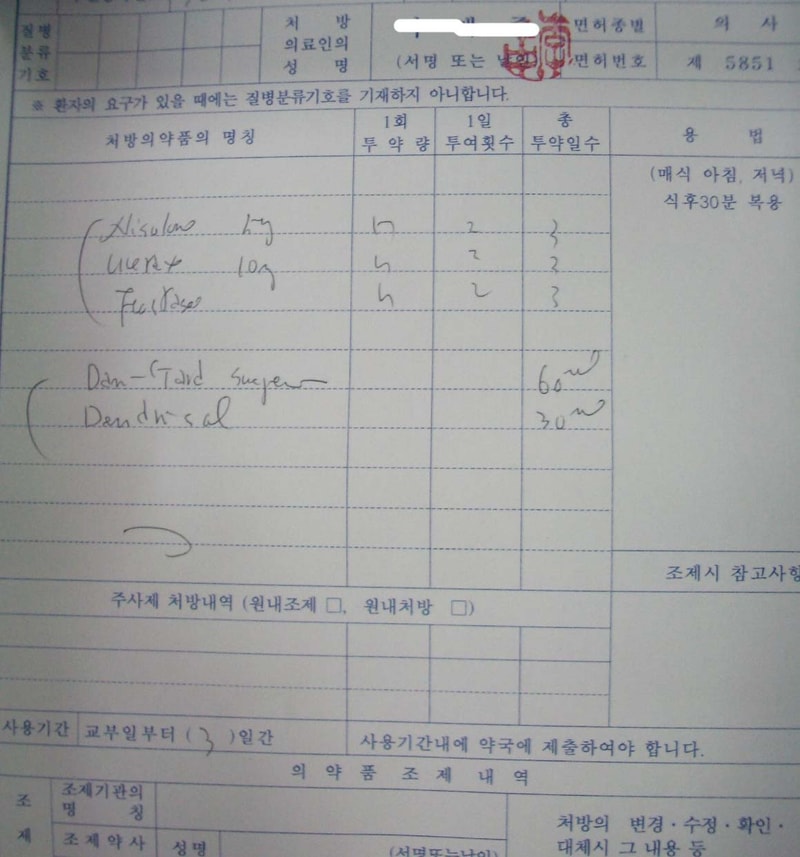 질병
분류
기호
처 방
의료인의
성 명
(서명 또는 날인)
면허종별
의 사
면허번호
제 5851
※ 환자의 요구가 있을 때에는 질병분류기호를 기재하지 아니합니다.
처방의약품의 명칭
1회
투 약 량
1일
투여횟수
총
투약일수
용 법
(매식 아침, 저녁)
식후30분 복용
2 3
10mg 2 3
2 3
Dan-Tard 60ml
30ml
조제시 참고사항
주사제 처방내역 (원내조제 □, 원내처방 □)
사용기간 교부일부터 ( 3 )일간
사용기간내에 약국에 제출하여야 합니다.
의 약 품 조 제 내 역
조
제
조제기관의
명 칭
조제약사
성명
(서명또는날인)
처방의 변경·수정·확인·
대체시 그 내용 등